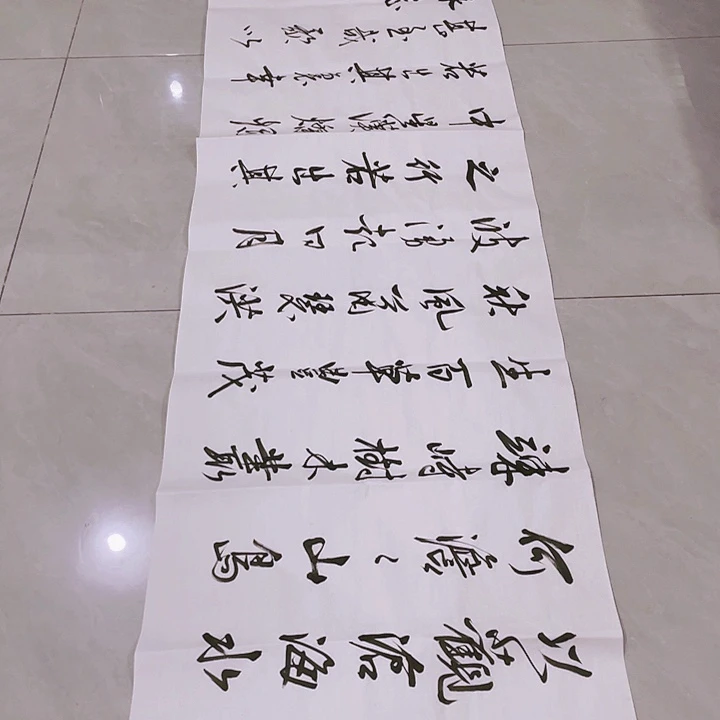 以觀滄海水
何澹〻山島
竦峙樹木叢
生百草豐茂
秋風蕭瑟洪
波湧起日月
之行若出其
中星漢燦爛
若出其裏幸
甚至哉歌以